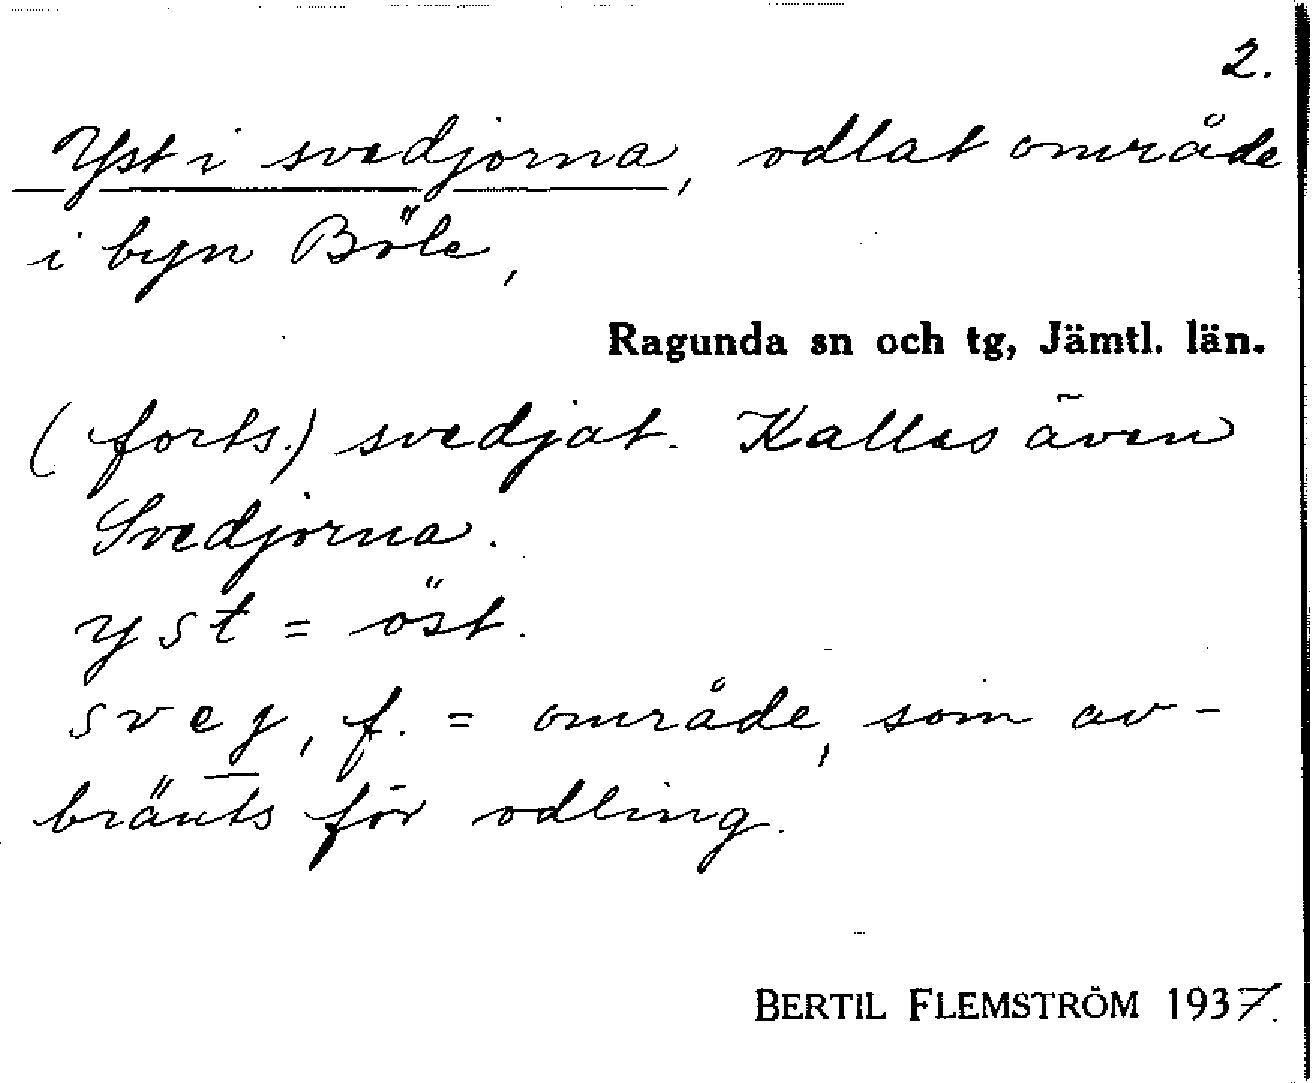 2.
Yst i svedjorna, odlat område
i byn Böle,
Ragunda sn och tg, Jämtl. län.
(forts.) svedjat. Kallas även
Svedjorna.
yst = öst.
svej, f. = område, som av-
bränts för odling.
BERTIL FLEMSTRÖM 1937.